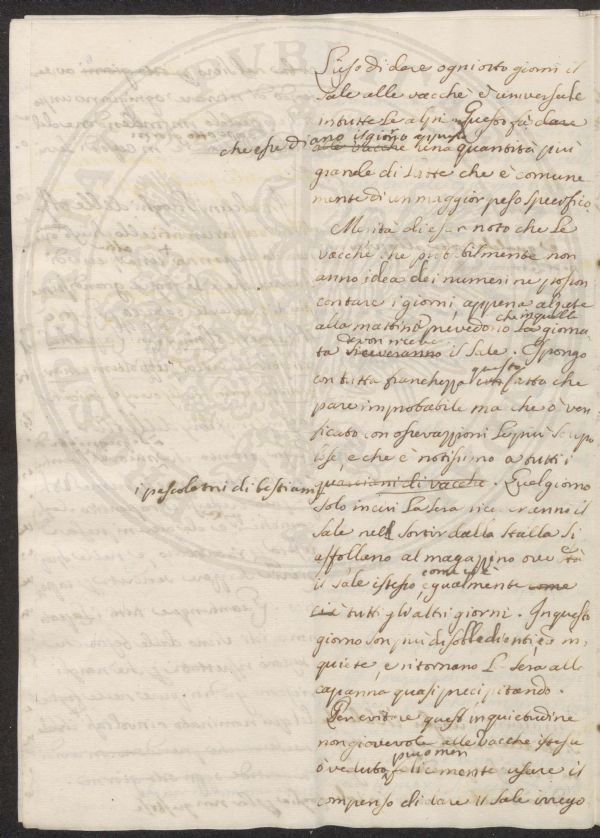 L'uso di dare ogni otto giorni il
sale alle vacche è universale
in tutte le alpi. Questo fà dare
che esse diano il giorno appresso
alle vacche una quantità più
grande di Latte che è comune
mente di un maggior peso specifico.
Merita di esser noto che le
vacche che probabilmente non
anno idea dei numeri ne posson
contare i giorni, appena alzate
alla mattina prevedono che in quella
la giorna
ta devon ricevere
riceveranno il sale. Espongo
con tutta franchezza questo fatto che
pare improbabile ma che ò veri
ficato con osservazioni le più scrupo
lose, e che è notissimo a tutti i
i possessori di bestiami
guardiani di vacche. Quel giorno
solo in cui la sera riceveranno il
sale nel sortir dalla stalla si
affollano al magazzino ove
il sale istesso, come egualmente come
è tutti gli altri giorni. In questo
giorno son più disobbedienti, ed in
quiete, e ritornano la sera alle
capanna quasi precipitando.
Per evitare quest'inquietudine
non giovevole alle vacche istesse
ò veduto più o men felicemente usare il
compenso di dare il sale irrego